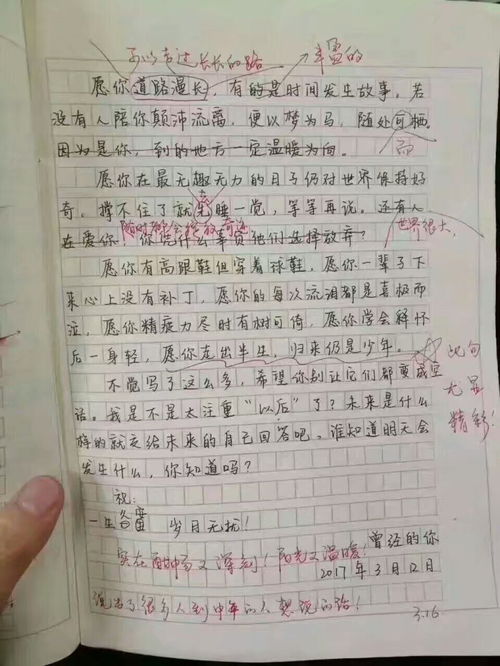 可以走过长长的路
丰富的
愿你道路漫长，有的是时间发生故事。若
没有人陪你颠沛流离，便以梦为马，随处可栖。
而
因为是你，到的地方一定温暖为向。
愿你在最无趣无力的日子仍对世界保持好
奇。撑不住了就先睡一觉，等等再说。还有人
在爱你，你凭什么辜负他们选择放弃？
世界很大，
愿你有高跟鞋但穿着球鞋，愿你一辈子下
来心上没有补丁，愿你的每次流泪都是喜极而
泣，愿你精疲力尽时有树可倚，愿你学会释怀
后一身轻，愿你走出半生，归来仍是少年。
此句
尤显
精彩！
不觉写了这么多，希望你别让它们都变成空
话。我是不是太注重“以后”了？未来是什么
样的就交给未来的自己回答吧。谁知道明天会
发生什么，你知道吗？
祝：
一生 岁月无扰！
实在酣畅又深刻！阳光又温暖！
曾经的你
2017年3月12日
说出了很多人到中年的人想说的话！
3.16